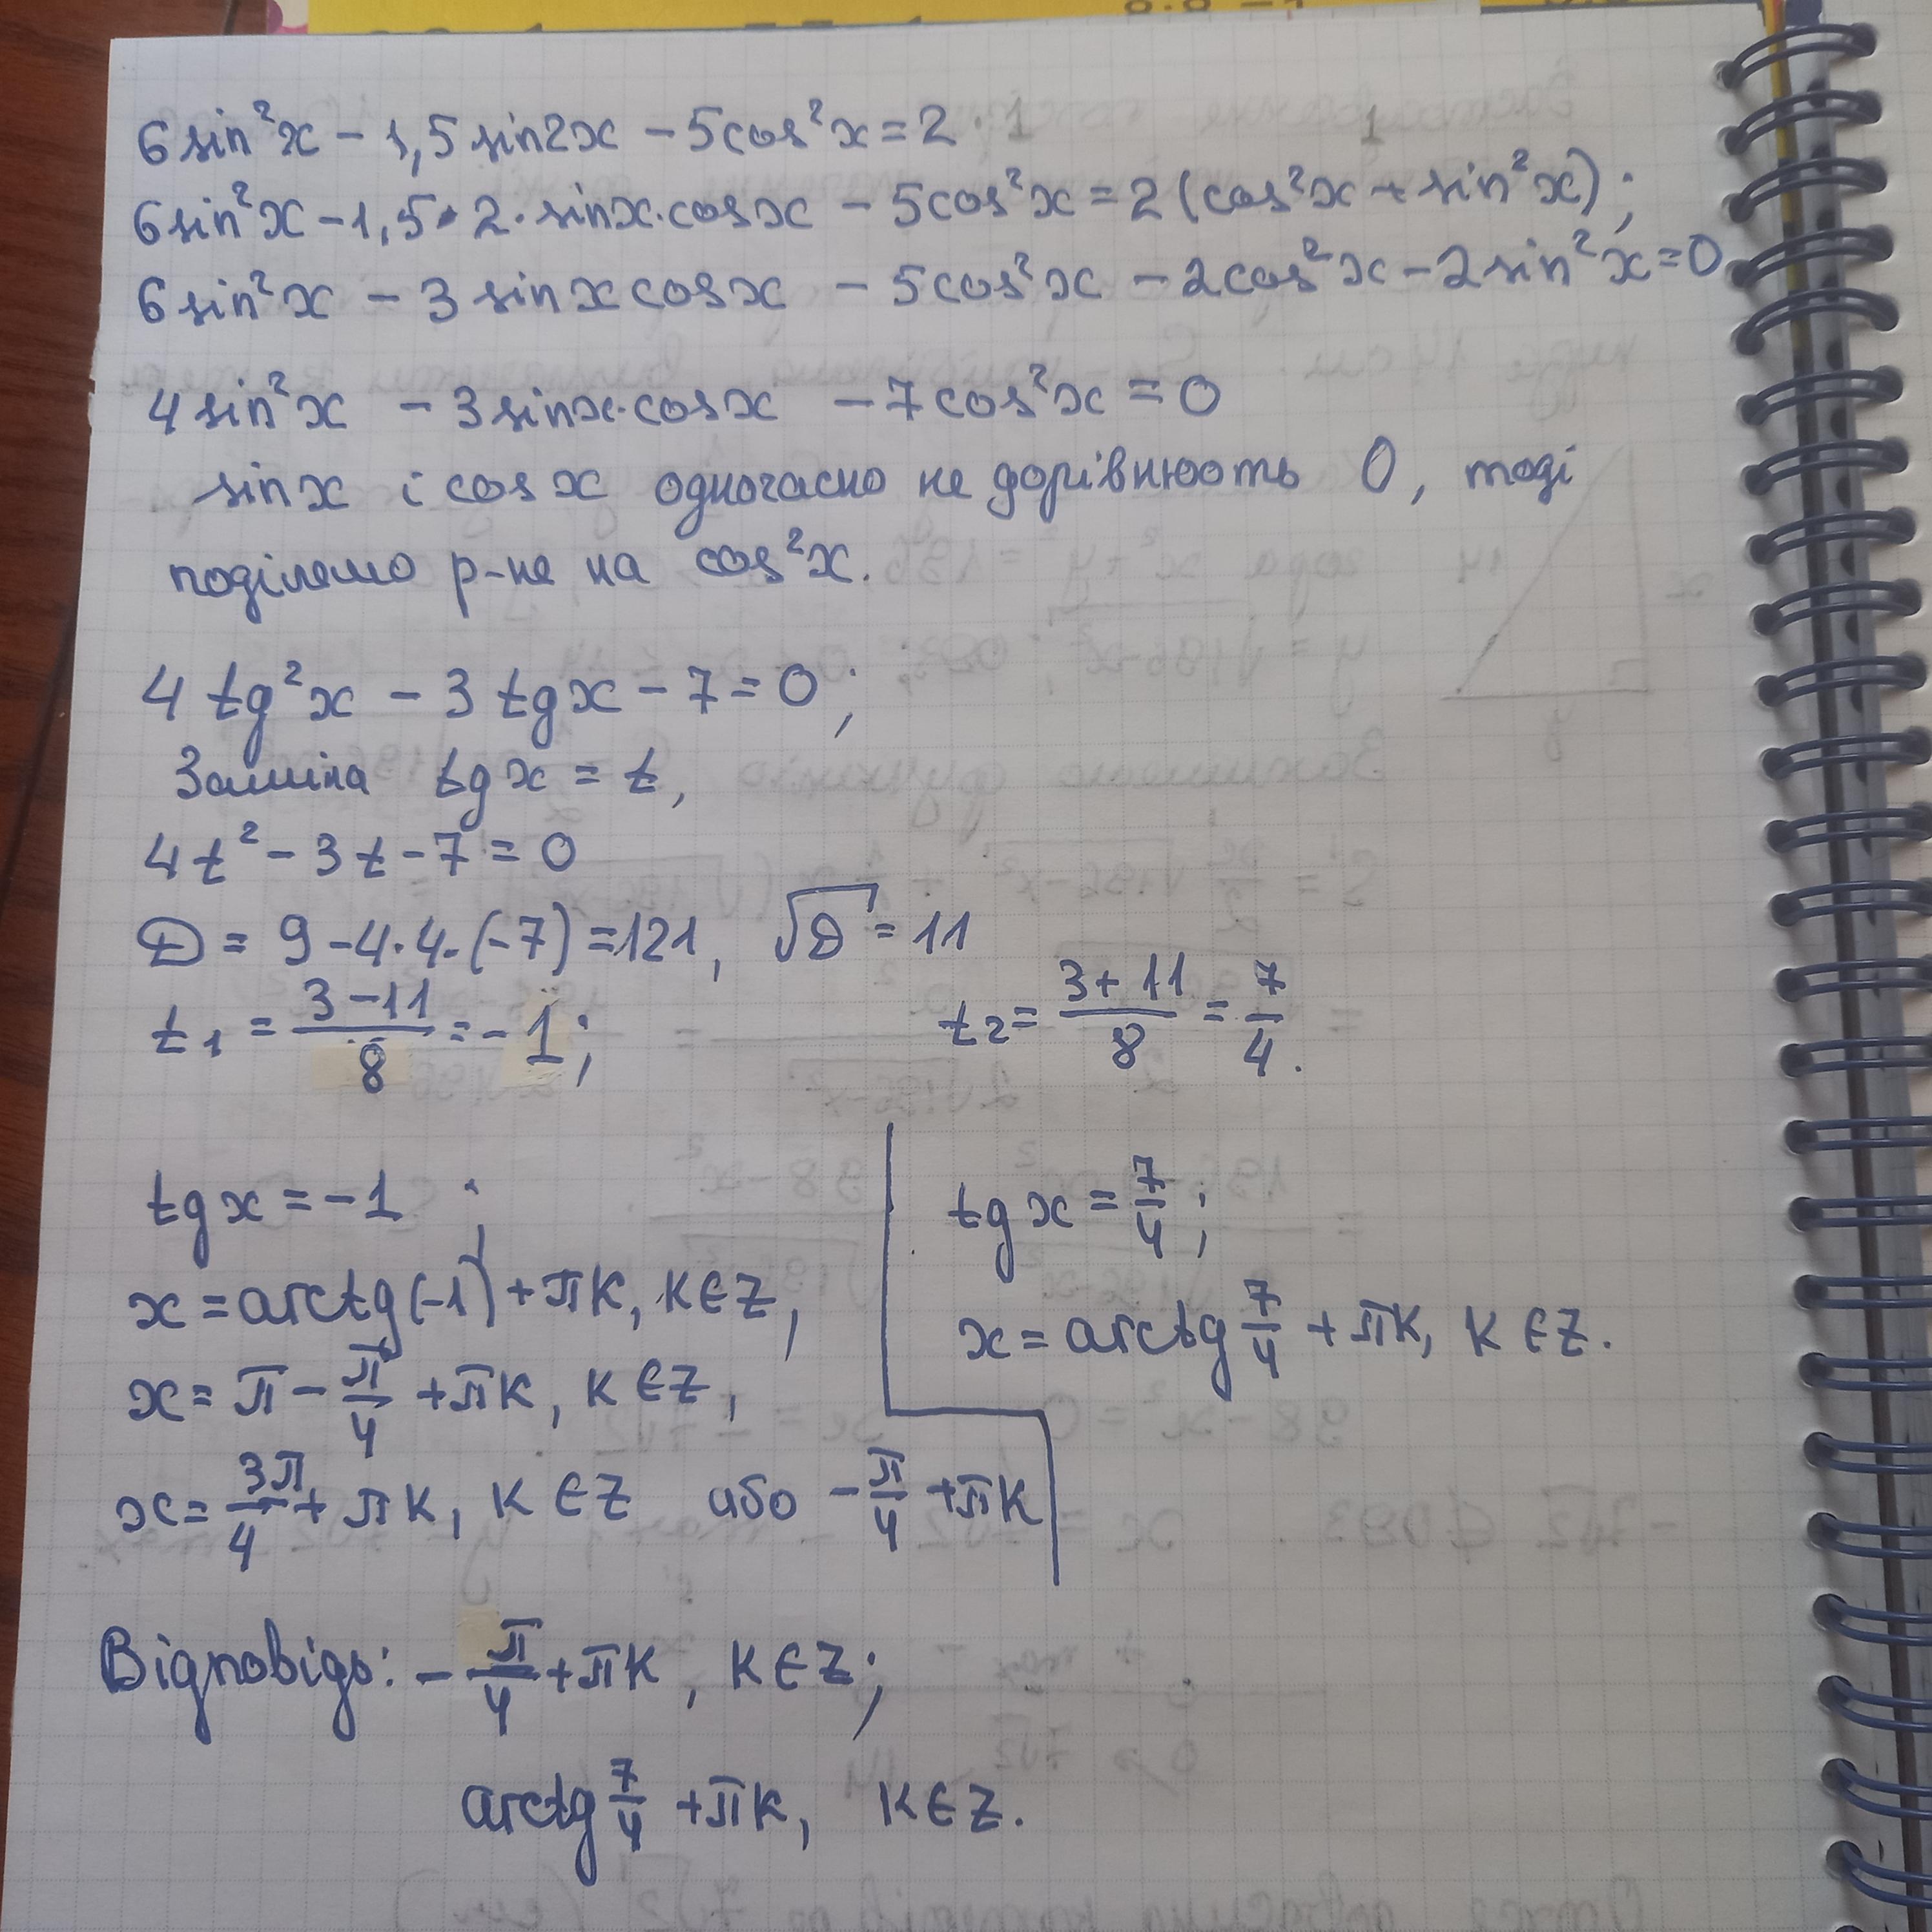 6 sin²x − 1,5 sin2x − 5cos²x = 2 · 1
1
6 sin²x − 1,5 · 2 · sinx · cosx − 5cos²x = 2 (cos²x + sin²x);
6 sin²x − 3 sinx cosx − 5cos²x − 2cos²x − 2 sin²x = 0
4 sin²x − 3 sinx · cosx − 7cos²x = 0
sin x і cos x одночасно не дорівнюють 0, тоді
поділемо р-не на cos²x.
4 tg²x − 3 tgx − 7 = 0;
Заміна tgx = t,
4t² − 3t − 7 = 0
D = 9 − 4 · 4 · (−7) = 121, √D = 11
t₁ = (3 − 11)/8 = −1; t₂ = (3 + 11)/8 = 7/4.
tgx = −1; tgx = 7/4;
x = arctg(−1) + πk, k ∈ Z, x = arctg 7/4 + πk, k ∈ Z.
x = π − π/4 + πk, k ∈ Z,
x = 3π/4 + πk, k ∈ Z або − π/4 + πk
Відповідь: − π/4 + πk, k ∈ Z;
arctg 7/4 + πk, k ∈ Z.